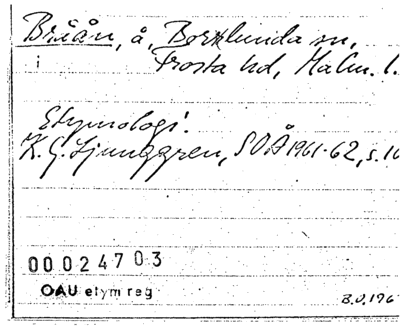 Bråån, å, Borrlunda sn,
i Frosta hd, Malm. l.
Etymologi:
K. G. Ljunggren, SOÅ 1961-62, s. 10
00024703
OAU etym reg
B.O. 196